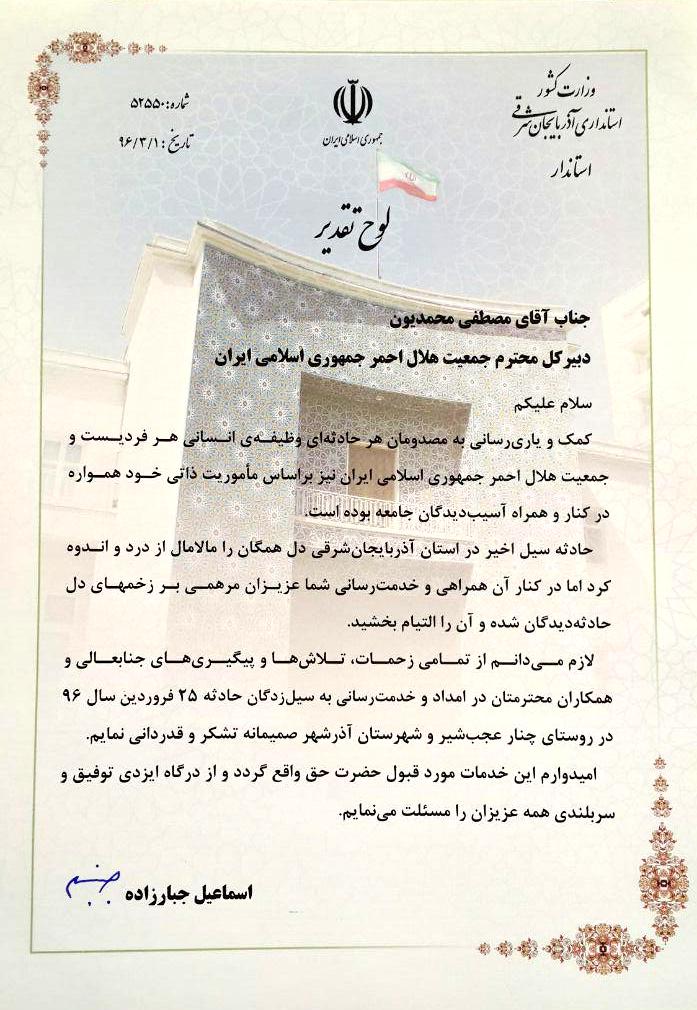 وزارت کشور
استانداری آذربایجان شرقی
استاندار
جمهوری اسلامی ایران
شماره: ۵۲۵۵۰
تاریخ: ۹۶/۳/۱
لوح تقدیر
جناب آقای مصطفی محمدیون
دبیرکل محترم جمعیت هلال احمر جمهوری اسلامی ایران
سلام علیکم
کمک و یاری‌رسانی به مصدومان هر حادثه‌ای وظیفه‌ی انسانی هر فردیست و
جمعیت هلال احمر جمهوری اسلامی ایران نیز براساس مأموریت ذاتی خود همواره
در کنار و همراه آسیب‌دیدگان جامعه بوده است.
حادثه سیل اخیر در استان آذربایجان‌شرقی دل همگان را مالامال از درد و اندوه
کرد اما در کنار آن همراهی و خدمت‌رسانی شما عزیزان مرهمی بر زخمهای دل
حادثه‌دیدگان شده و آن را التیام بخشید.
لازم می‌دانم از تمامی زحمات، تلاش‌ها و پیگیری‌های جنابعالی و
همکاران محترمتان در امداد و خدمت‌رسانی به سیل‌زدگان حادثه ۲۵ فروردین سال ۹۶
در روستای چنار عجب‌شیر و شهرستان آذرشهر صمیمانه تشکر و قدردانی نمایم.
امیدوارم این خدمات مورد قبول حضرت حق واقع گردد و از درگاه ایزدی توفیق و
سربلندی همه عزیزان را مسئلت می‌نمایم.
اسماعیل جبارزاده